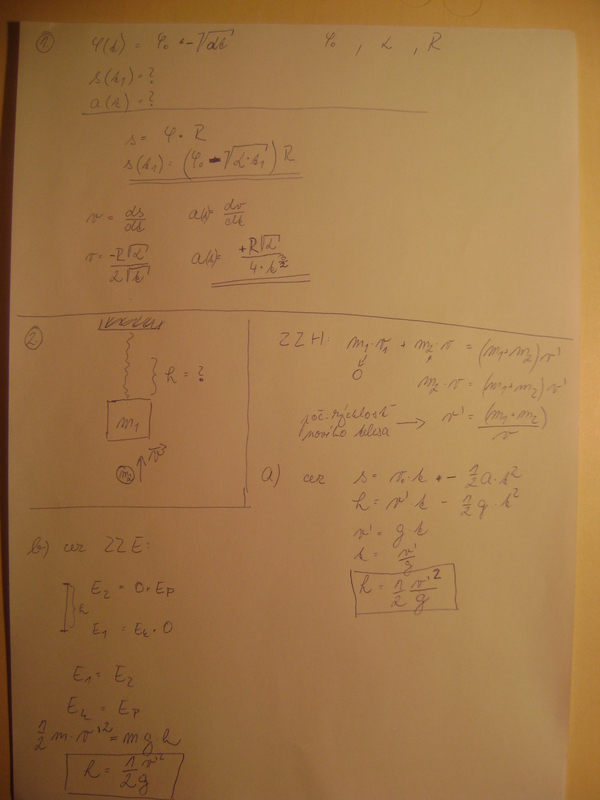 1) φ(t) = φ₀ - √αt φ₀ , α , R
s(t₁) = ?
a(t) = ?
s = φ · R
s(t₁) = (φ₀ - √α·t₁) R
v = ds/dt a(t) = dv/dt
v = -R√α / 2√t a(t) = +R√α / 4·t^(3/2)
2) h = ?
m₁
m₂ v
ZZH: m₁·v₁ + m₂·v = (m₁+m₂)v'
0
m₂·v = (m₁+m₂)v'
poč. rýchlosť nového telesa → v' = (m₁+m₂)/v
a) cez s = v₀·t - 1/2 a·t²
h = v't - 1/2 g·t²
v' = gt
t = v'/g
h = 1/2 v'²/g
b) cez ZZE:
h E₂ = 0·Ep
E₁ = Ek·0
E₁ = E₂
Ek = Ep
1/2 m·v'² = mgh
h = 1/2 v'²/g